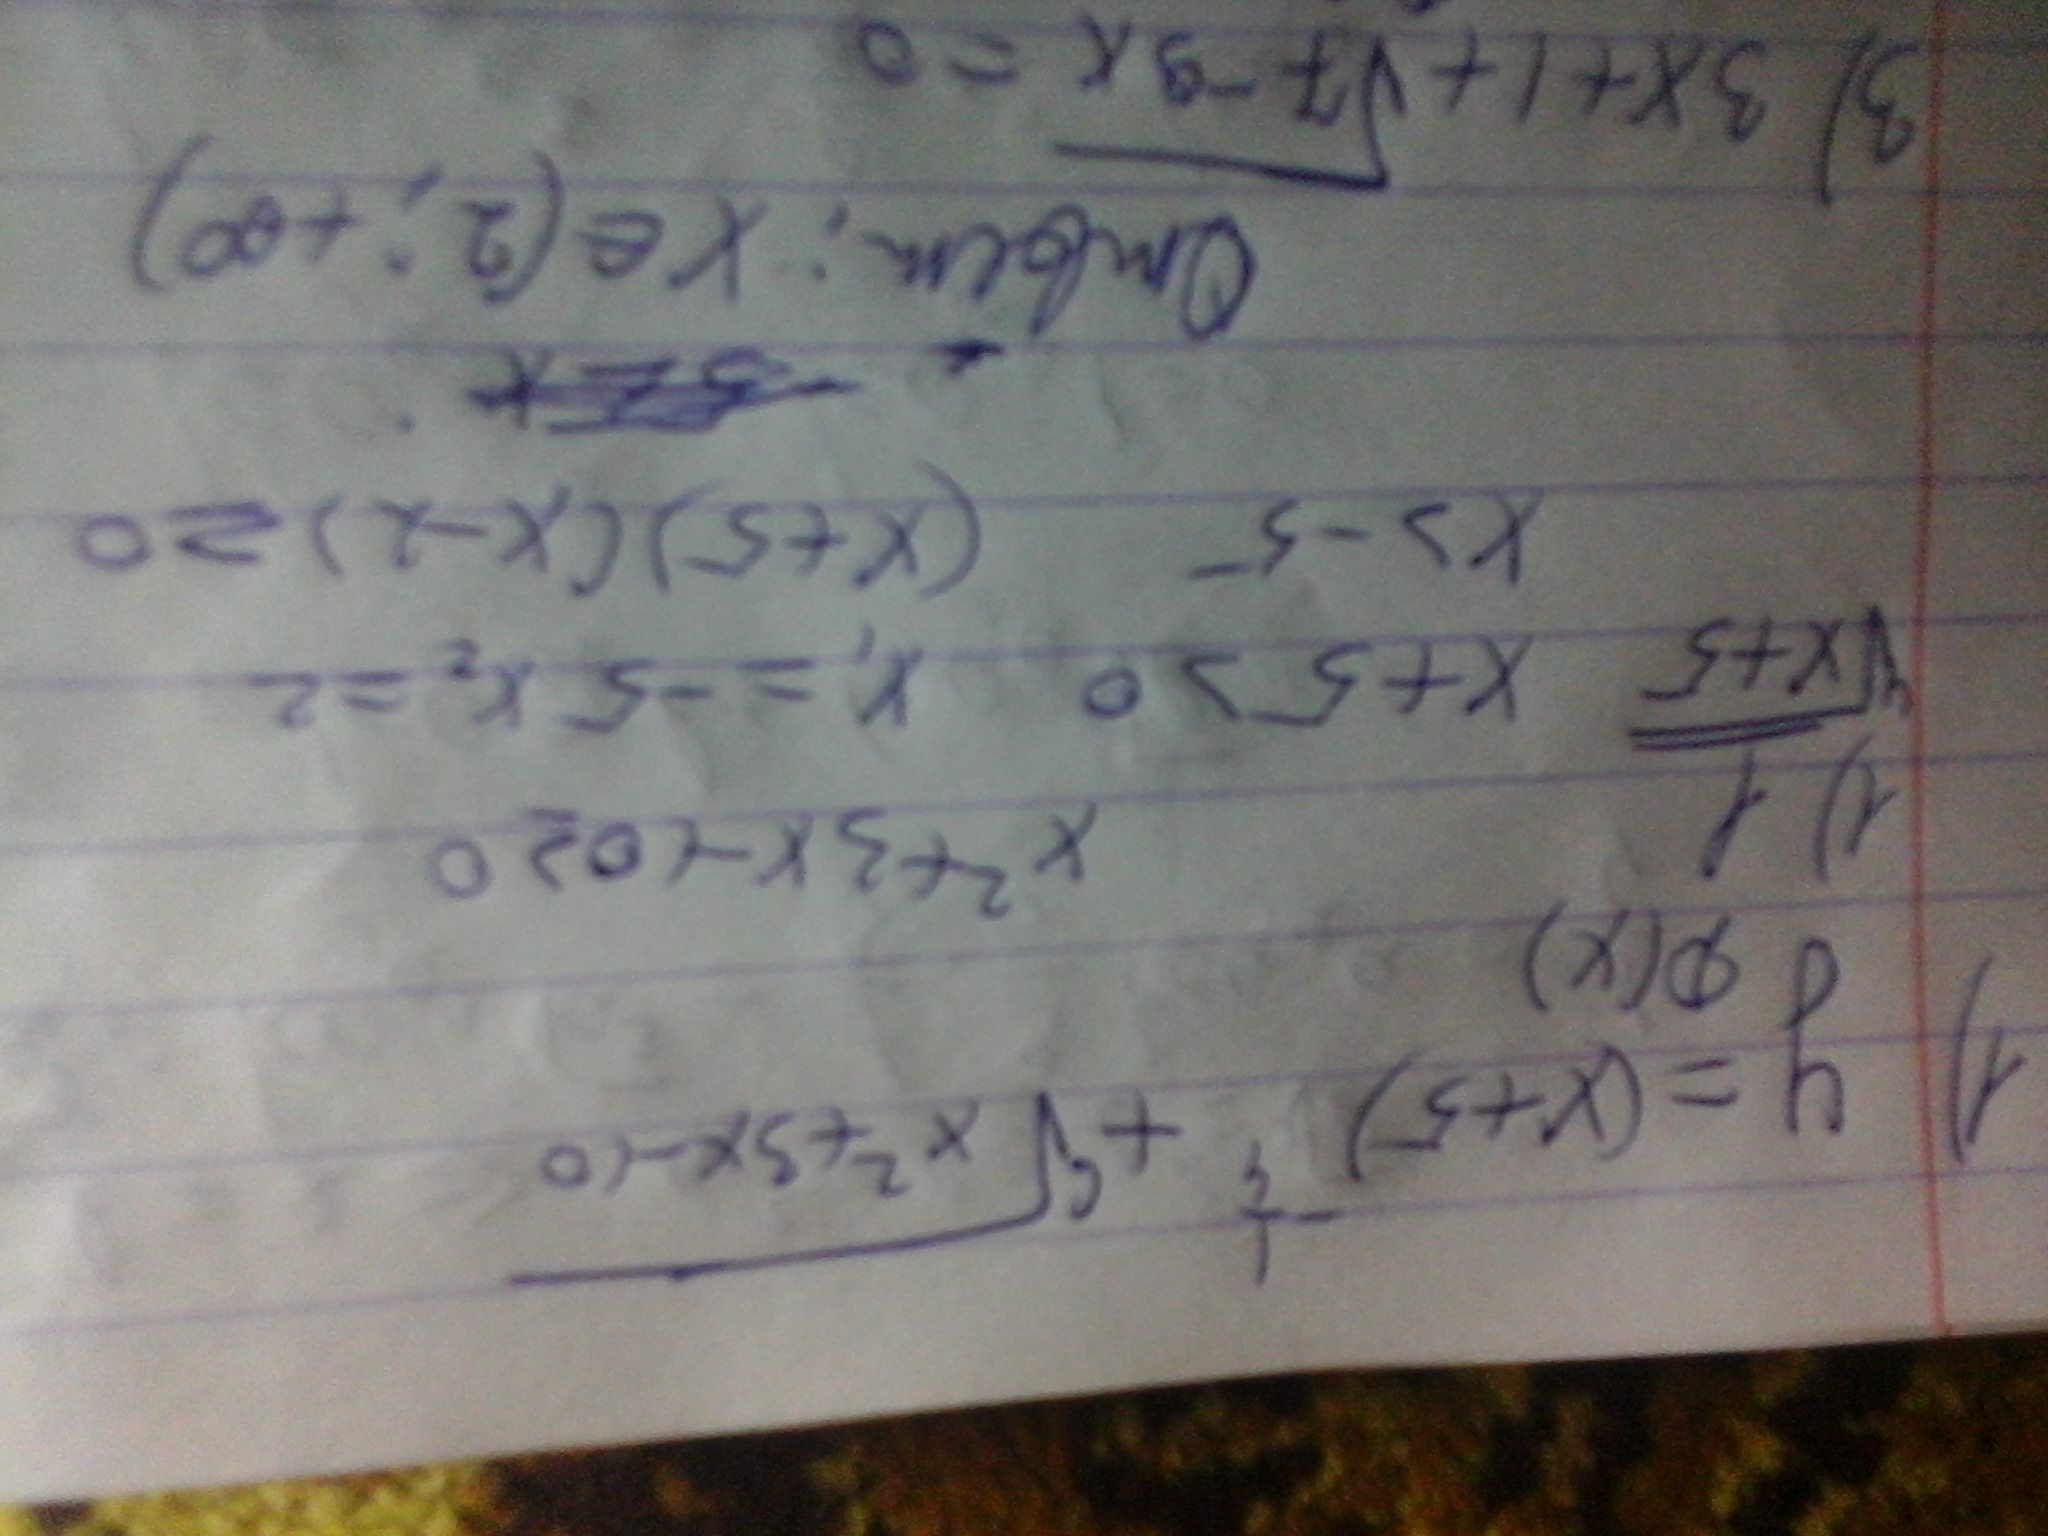 1) y = (x+5)^{1/4} + \sqrt[6]{x^2+3x-10}
D(x)
1) 1 x^2+3x-10≥0
\sqrt[4]{x+5} x+5>0 x_1=-5 x_2=2
x>-5 (x+5)(x-2)≥0
Ответ: x∈(2; +∞)
3) 3x+1+\sqrt{7-9x}=0